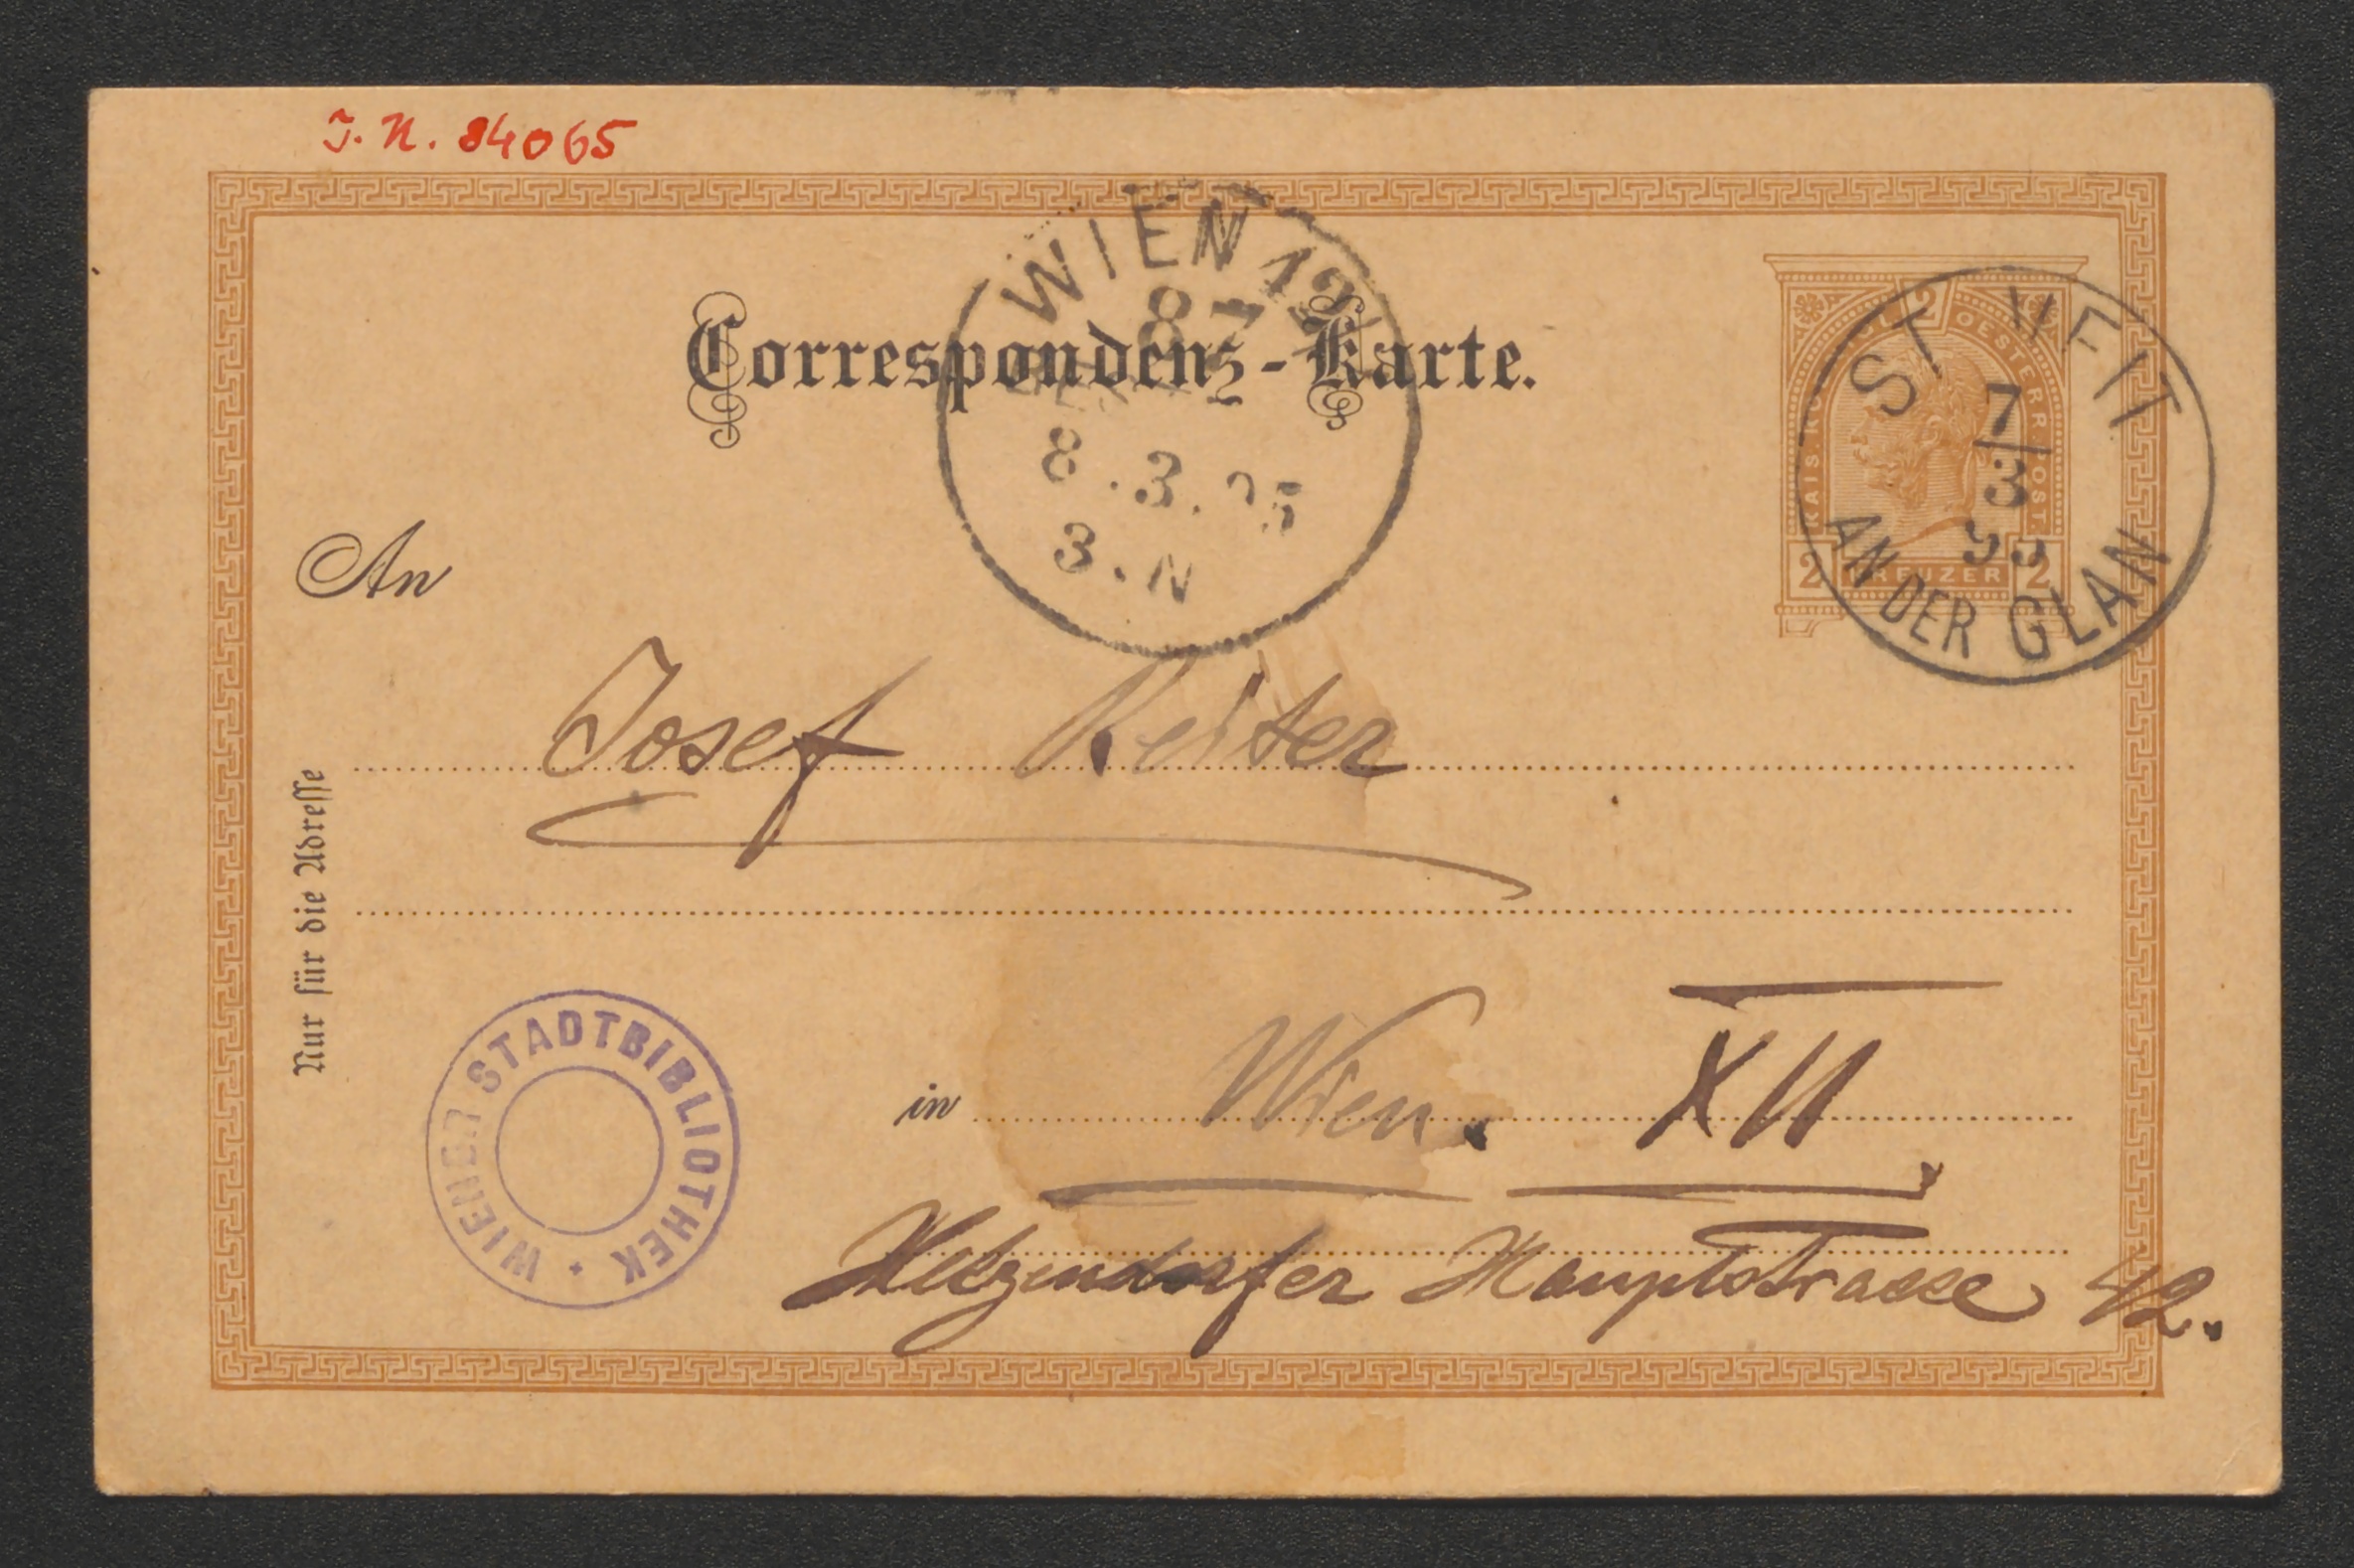 J. N. 84065
WIEN 12
8 7
8. 3. 95
3. N
Correspondenz-Karte.
KAIS. KOENIGL. OESTERR. POST.
2
2 KREUZER 2
ST VEIT
7
3
95
AN DER GLAN
An
Josef Reiter
Nur für die Adresse
WIENER STADTBIBLIOTHEK *
in Wien. XII.
Hetzendorfer Hauptstrasse 42.